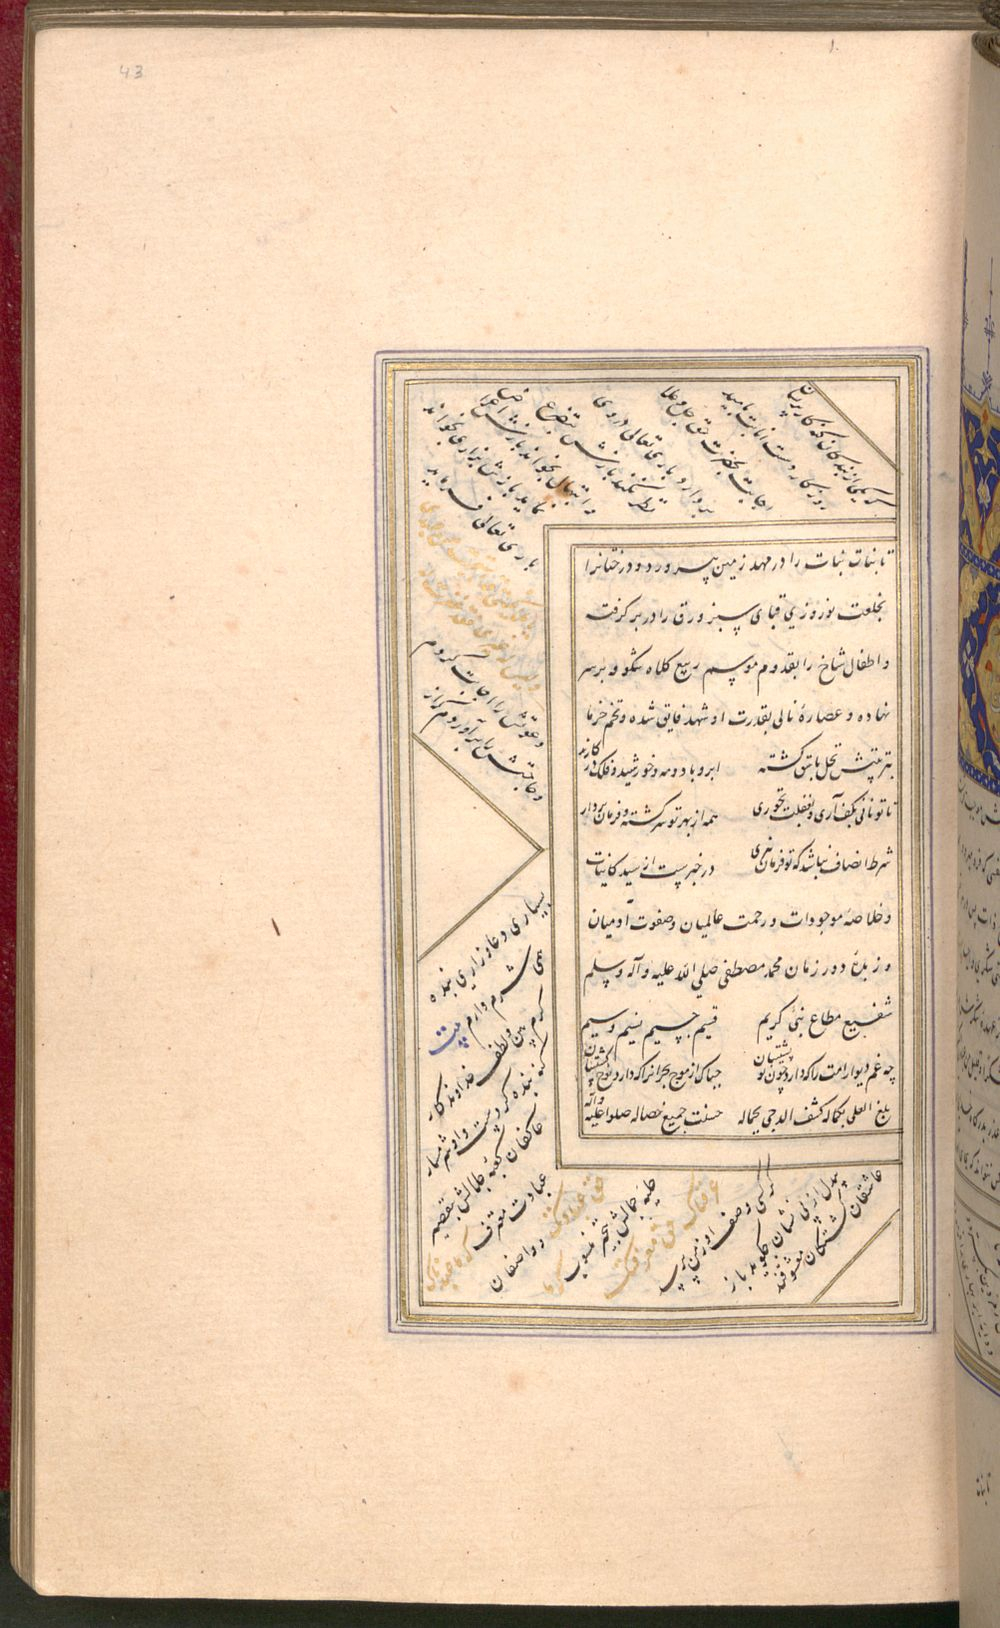 تا بنات نبات را در مهد زمین بپرورد و درختانرا
بخلعت نوروزی قبای سبز ورق را در بر گرفته
و اطفال شاخ را بقدوم موسم ربیع کلاه شکوفه بر سر
نهاده و عصارهٔ نالی بقدرت او شهد فایق شده و تخم خرما
بتربیتش نخل باسق گشته ابر و باد و مه و خورشید و فلک در کارند
تا تو نانی بکف آری و بغفلت نخوری همه از بهر تو سرگشته و فرمان بردار
شرط انصاف نباشد که تو فرمان نبری در خبرست از سید کاینات
و خلاصهٔ موجودات و رحمت عالمیان و صفوت آدمیان
و زبدهٔ دور زمان محمد مصطفی صلی الله علیه و آله و سلم
شفیع مطاع نبی کریم قسیم جسیم نسیم وسیم
چه غم دیوار امت را که دارد چون تو پشتیبان چه باک از موج بحر آنرا که دارد نوح کشتیبان
بلغ العلی بکماله کشف الدجی بجماله حسنت جمیع خصاله صلوا علیه و آله
که یکی از بندکان کنه کار پریشان
روزکار دست انابت بامید
اجابت بحضرت حق جل و علا
بردارد باری تعالی در وی
نظر نکند بازش بتضرع
و ابتهال بخواند بازش اعراض
نماید بازش بزاری بخواند
باری تعالی فرماید
دعوتش را اجابت کردم
و حاجتش را برآوردم که از
بسیاری دعا و زاری بنده
همی شرم دارم بیت
کرم بین و لطف خداوندکار
که بنده کردست و او شرمسار
عاکفان کعبه جلالش بتقصیر
عبادت معترف که ما عبدناک
حق عبادتک و واصفان
حلیه جمالش بتحیر منسوب که
ما عرفناک حق معرفتک
گر کسی وصف او ز من پرسد
بیدل از بی نشان چگوید باز
عاشقان کشتگان معشوقند
43